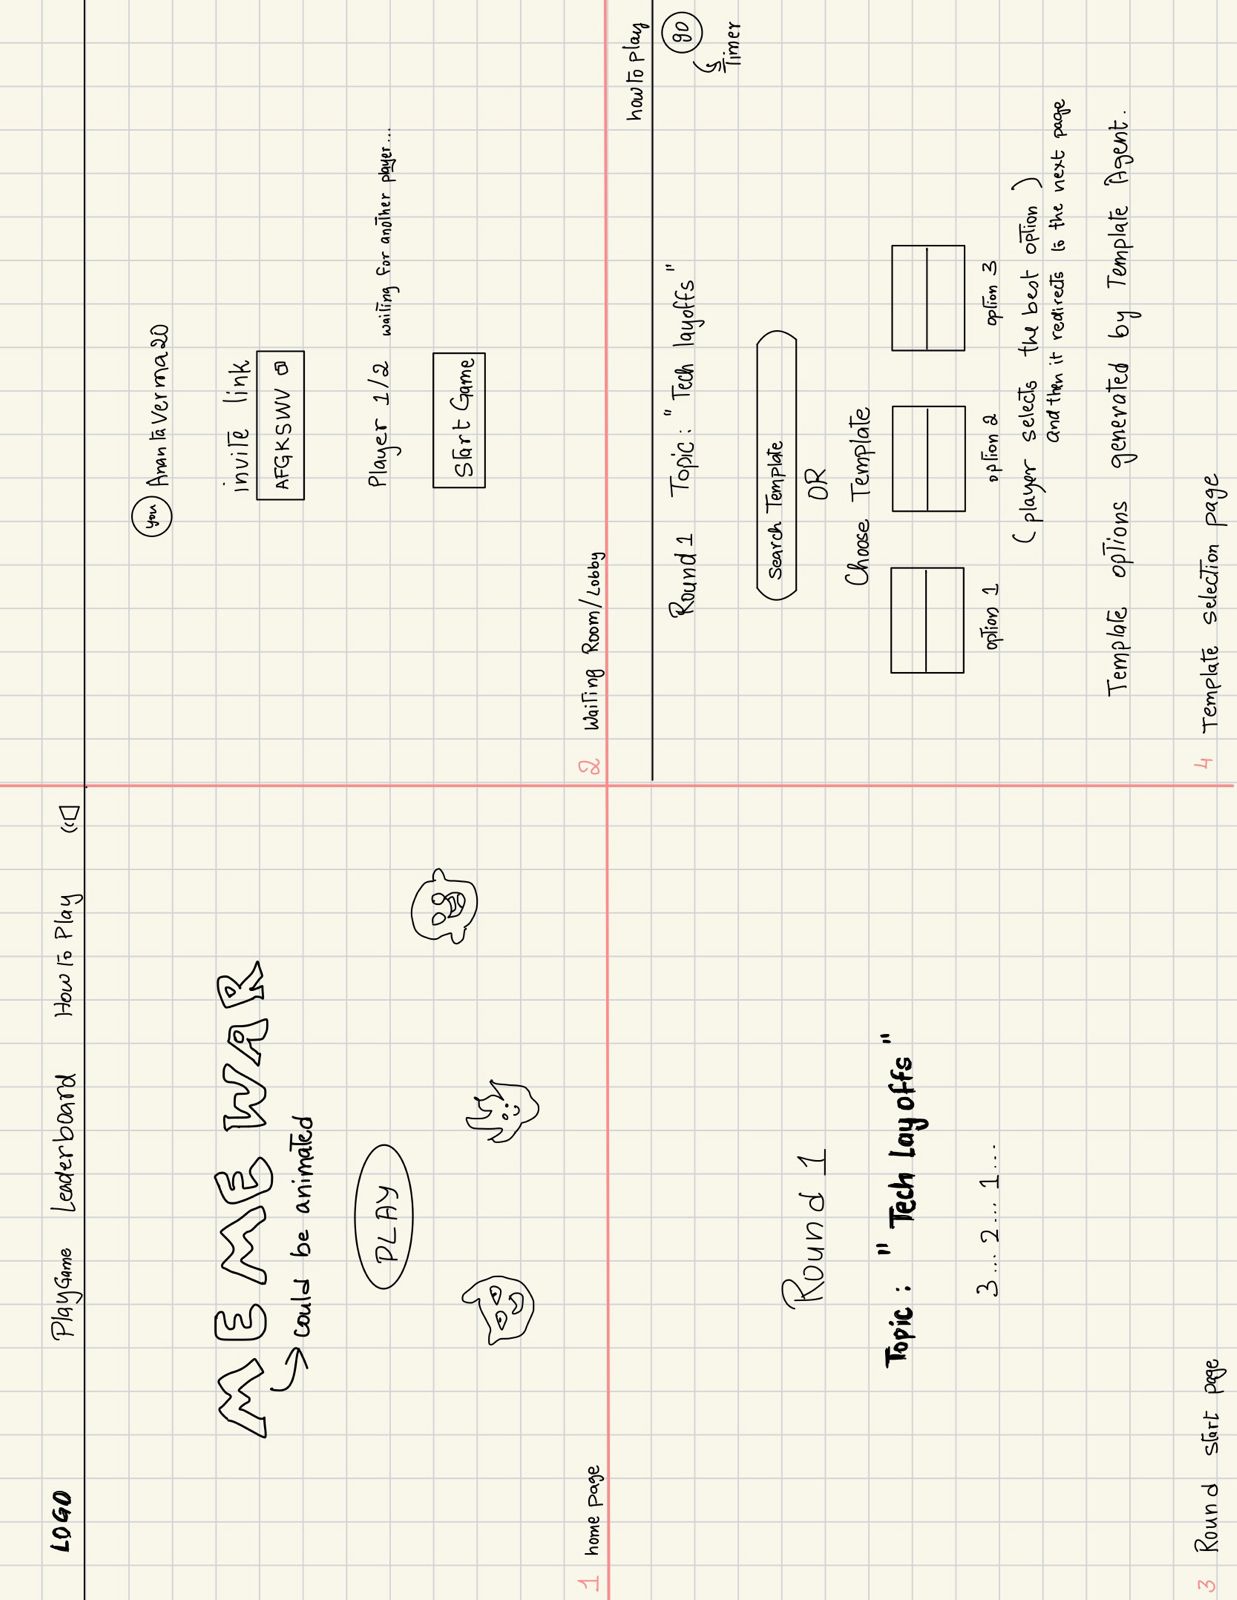 LOGO
Play Game Leaderboard How to Play
MEME WAR
could be animated
PLAY
1 home page
you AnantaVerma20
invite link
AFGKSWV
Player 1/2 waiting for another player...
Start Game
2 Waiting Room/Lobby
Round 1
Topic : "Tech layoffs"
3... 2... 1...
3 Round start page
how to play
90
Timer
Round 1 Topic : "Tech layoffs"
Search Template
OR
Choose Template
option 1 option 2 option 3
(player selects the best option)
and then it redirects to the next page
Template options generated by Template Agent.
4 Template selection page